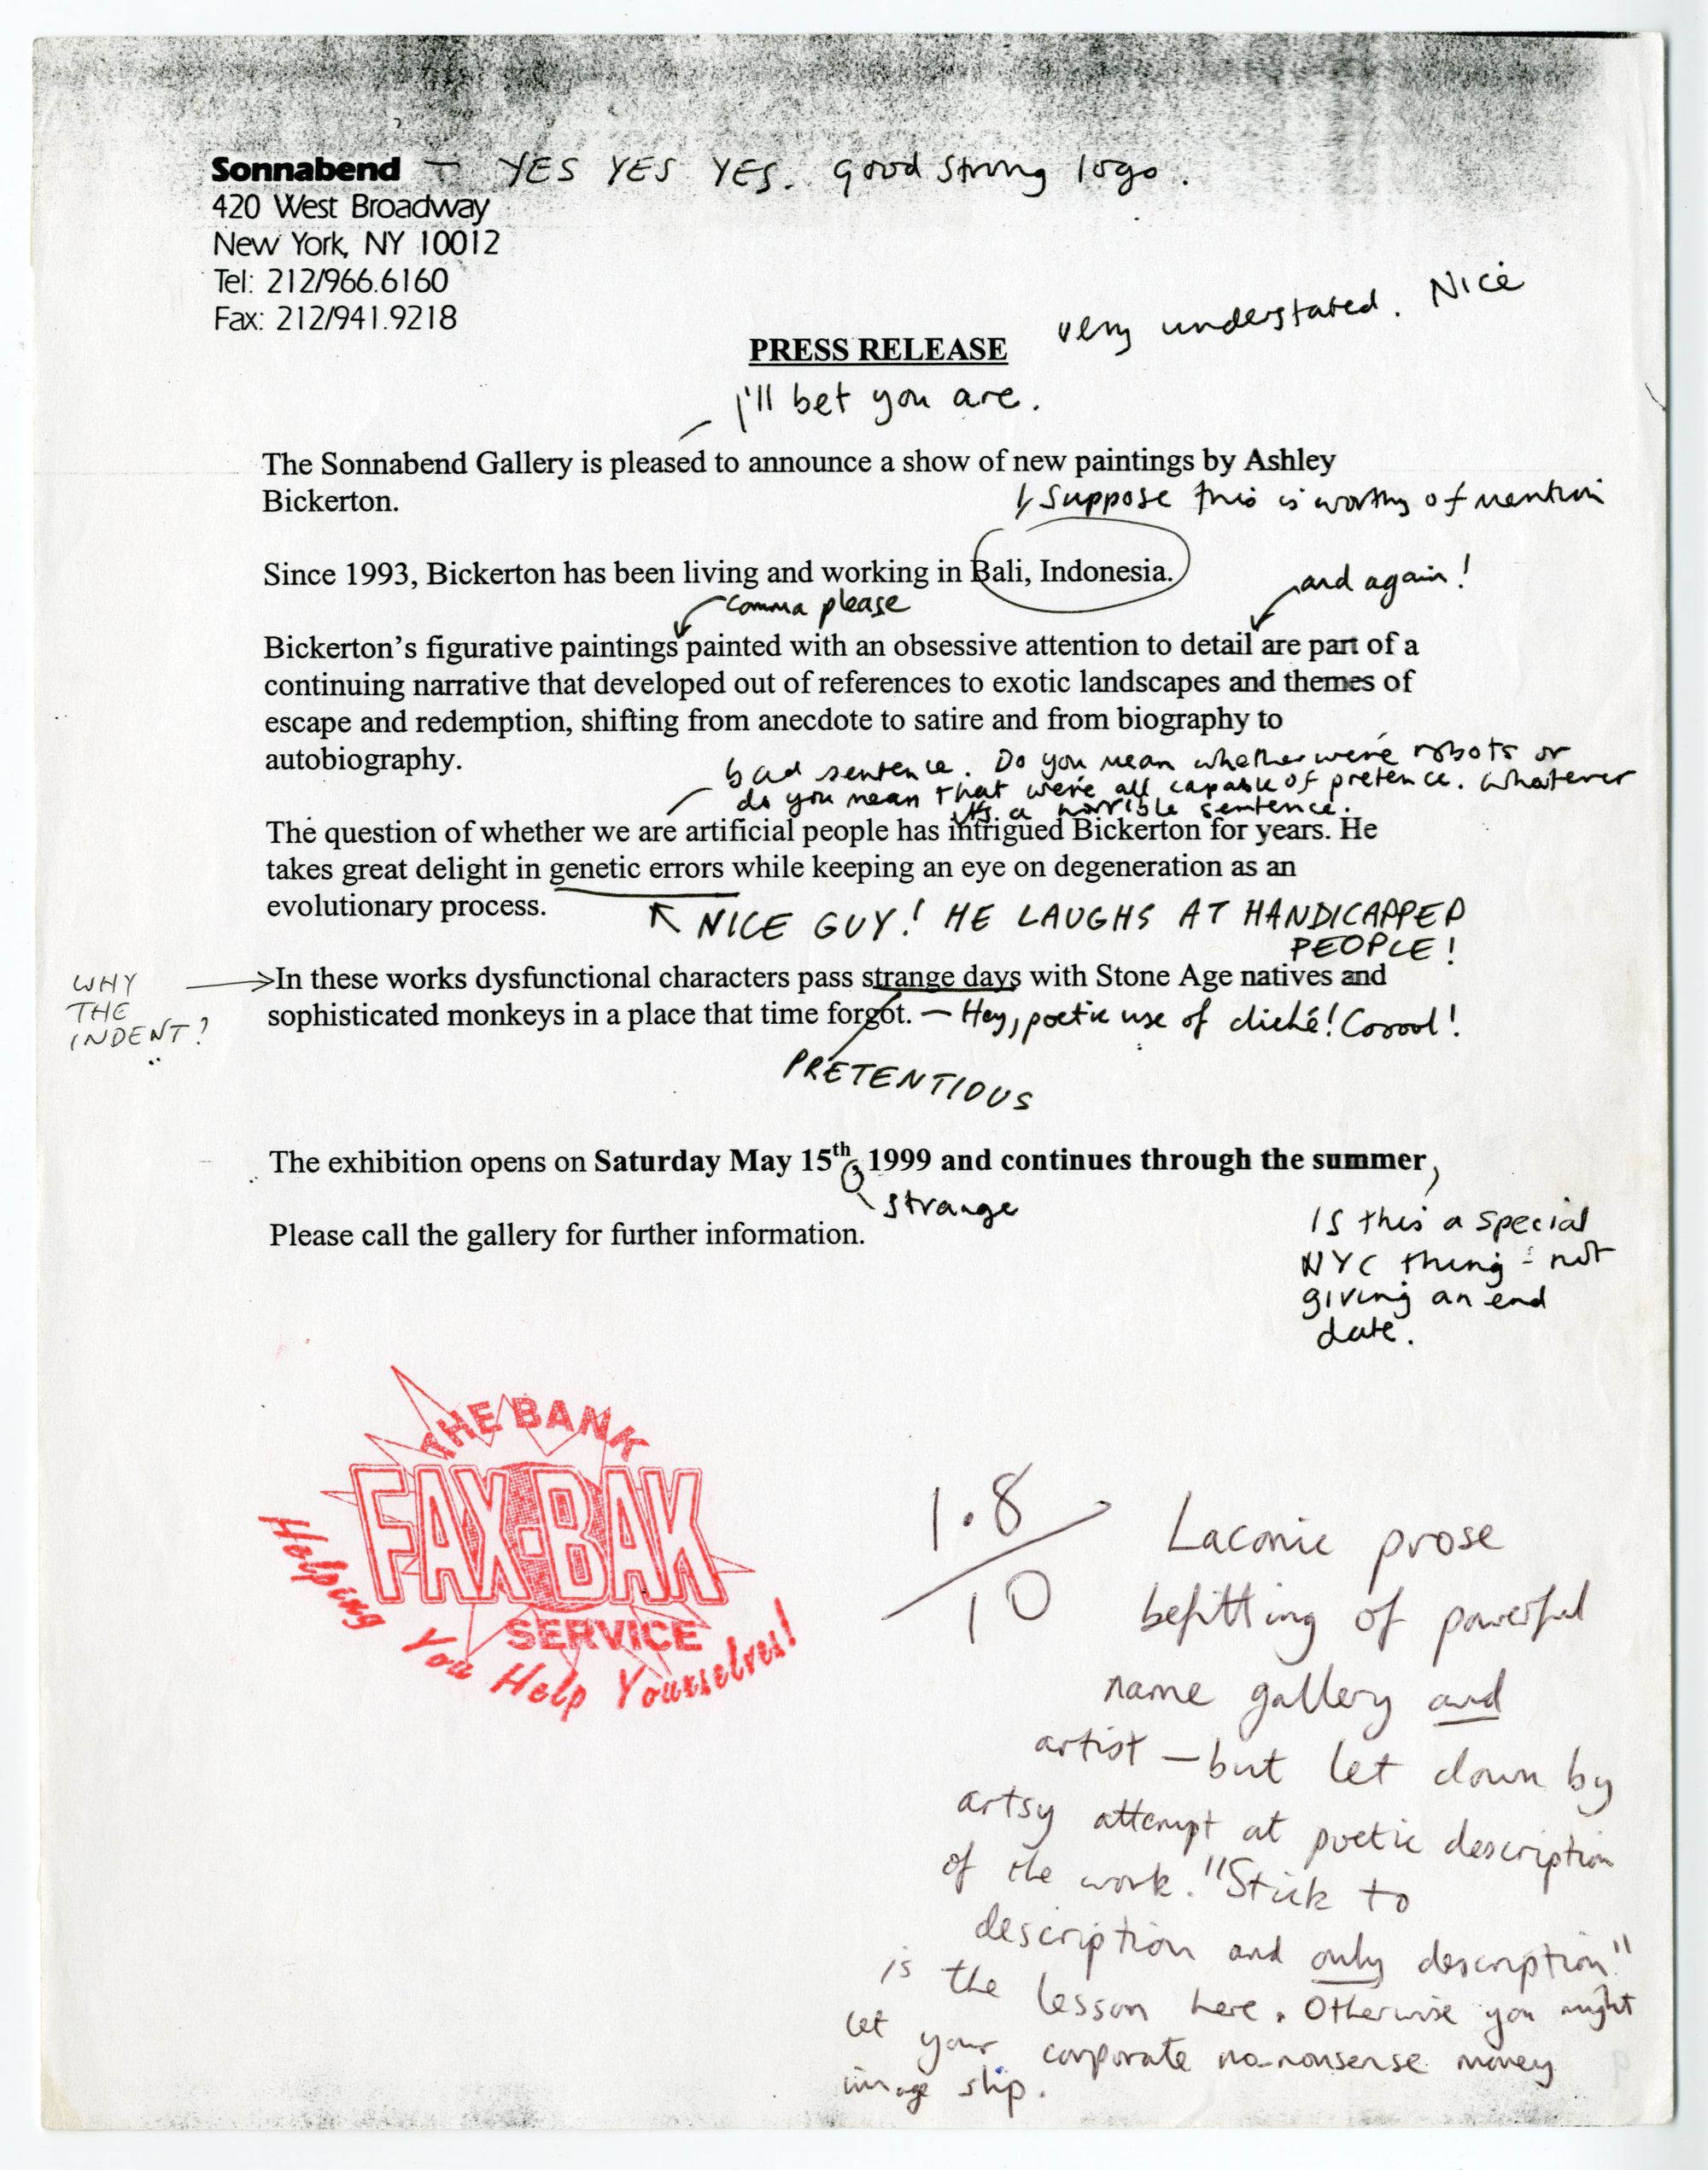 Sonnabend — YES YES YES. Good strong logo.
420 West Broadway
New York, NY 10012
Tel: 212/966.6160
Fax: 212/941.9218
very understated. Nice
PRESS RELEASE
I'll bet you are.
The Sonnabend Gallery is pleased to announce a show of new paintings by Ashley
Bickerton.
I suppose this is worthy of mention
Since 1993, Bickerton has been living and working in Bali, Indonesia.
and again!
comma please
Bickerton's figurative paintings painted with an obsessive attention to detail are part of a
continuing narrative that developed out of references to exotic landscapes and themes of
escape and redemption, shifting from anecdote to satire and from biography to
autobiography.
bad sentence. Do you mean whether we're robots or
do you mean that we're all capable of pretence. Whatever
it's a horrible sentence.
The question of whether we are artificial people has intrigued Bickerton for years. He
takes great delight in genetic errors while keeping an eye on degeneration as an
evolutionary process.
NICE GUY! HE LAUGHS AT HANDICAPPED
PEOPLE!
WHY
THE
INDENT?
In these works dysfunctional characters pass strange days with Stone Age natives and
sophisticated monkeys in a place that time forgot. — Hey, poetic use of cliché! Coool!
PRETENTIOUS
The exhibition opens on Saturday May 15th, 1999 and continues through the summer,
strange
Please call the gallery for further information.
Is this a special
NYC thing - not
giving an end
date.
THE BANK
FAX-BAK
SERVICE
Helping You Help Yourselves!
1.8/10
Laconic prose
befitting of powerful
name gallery and
artist — but let down by
artsy attempt at poetic description
of the work. "Stick to
description and only description"
is the lesson here. Otherwise you might
let your corporate no-nonsense money
image slip.